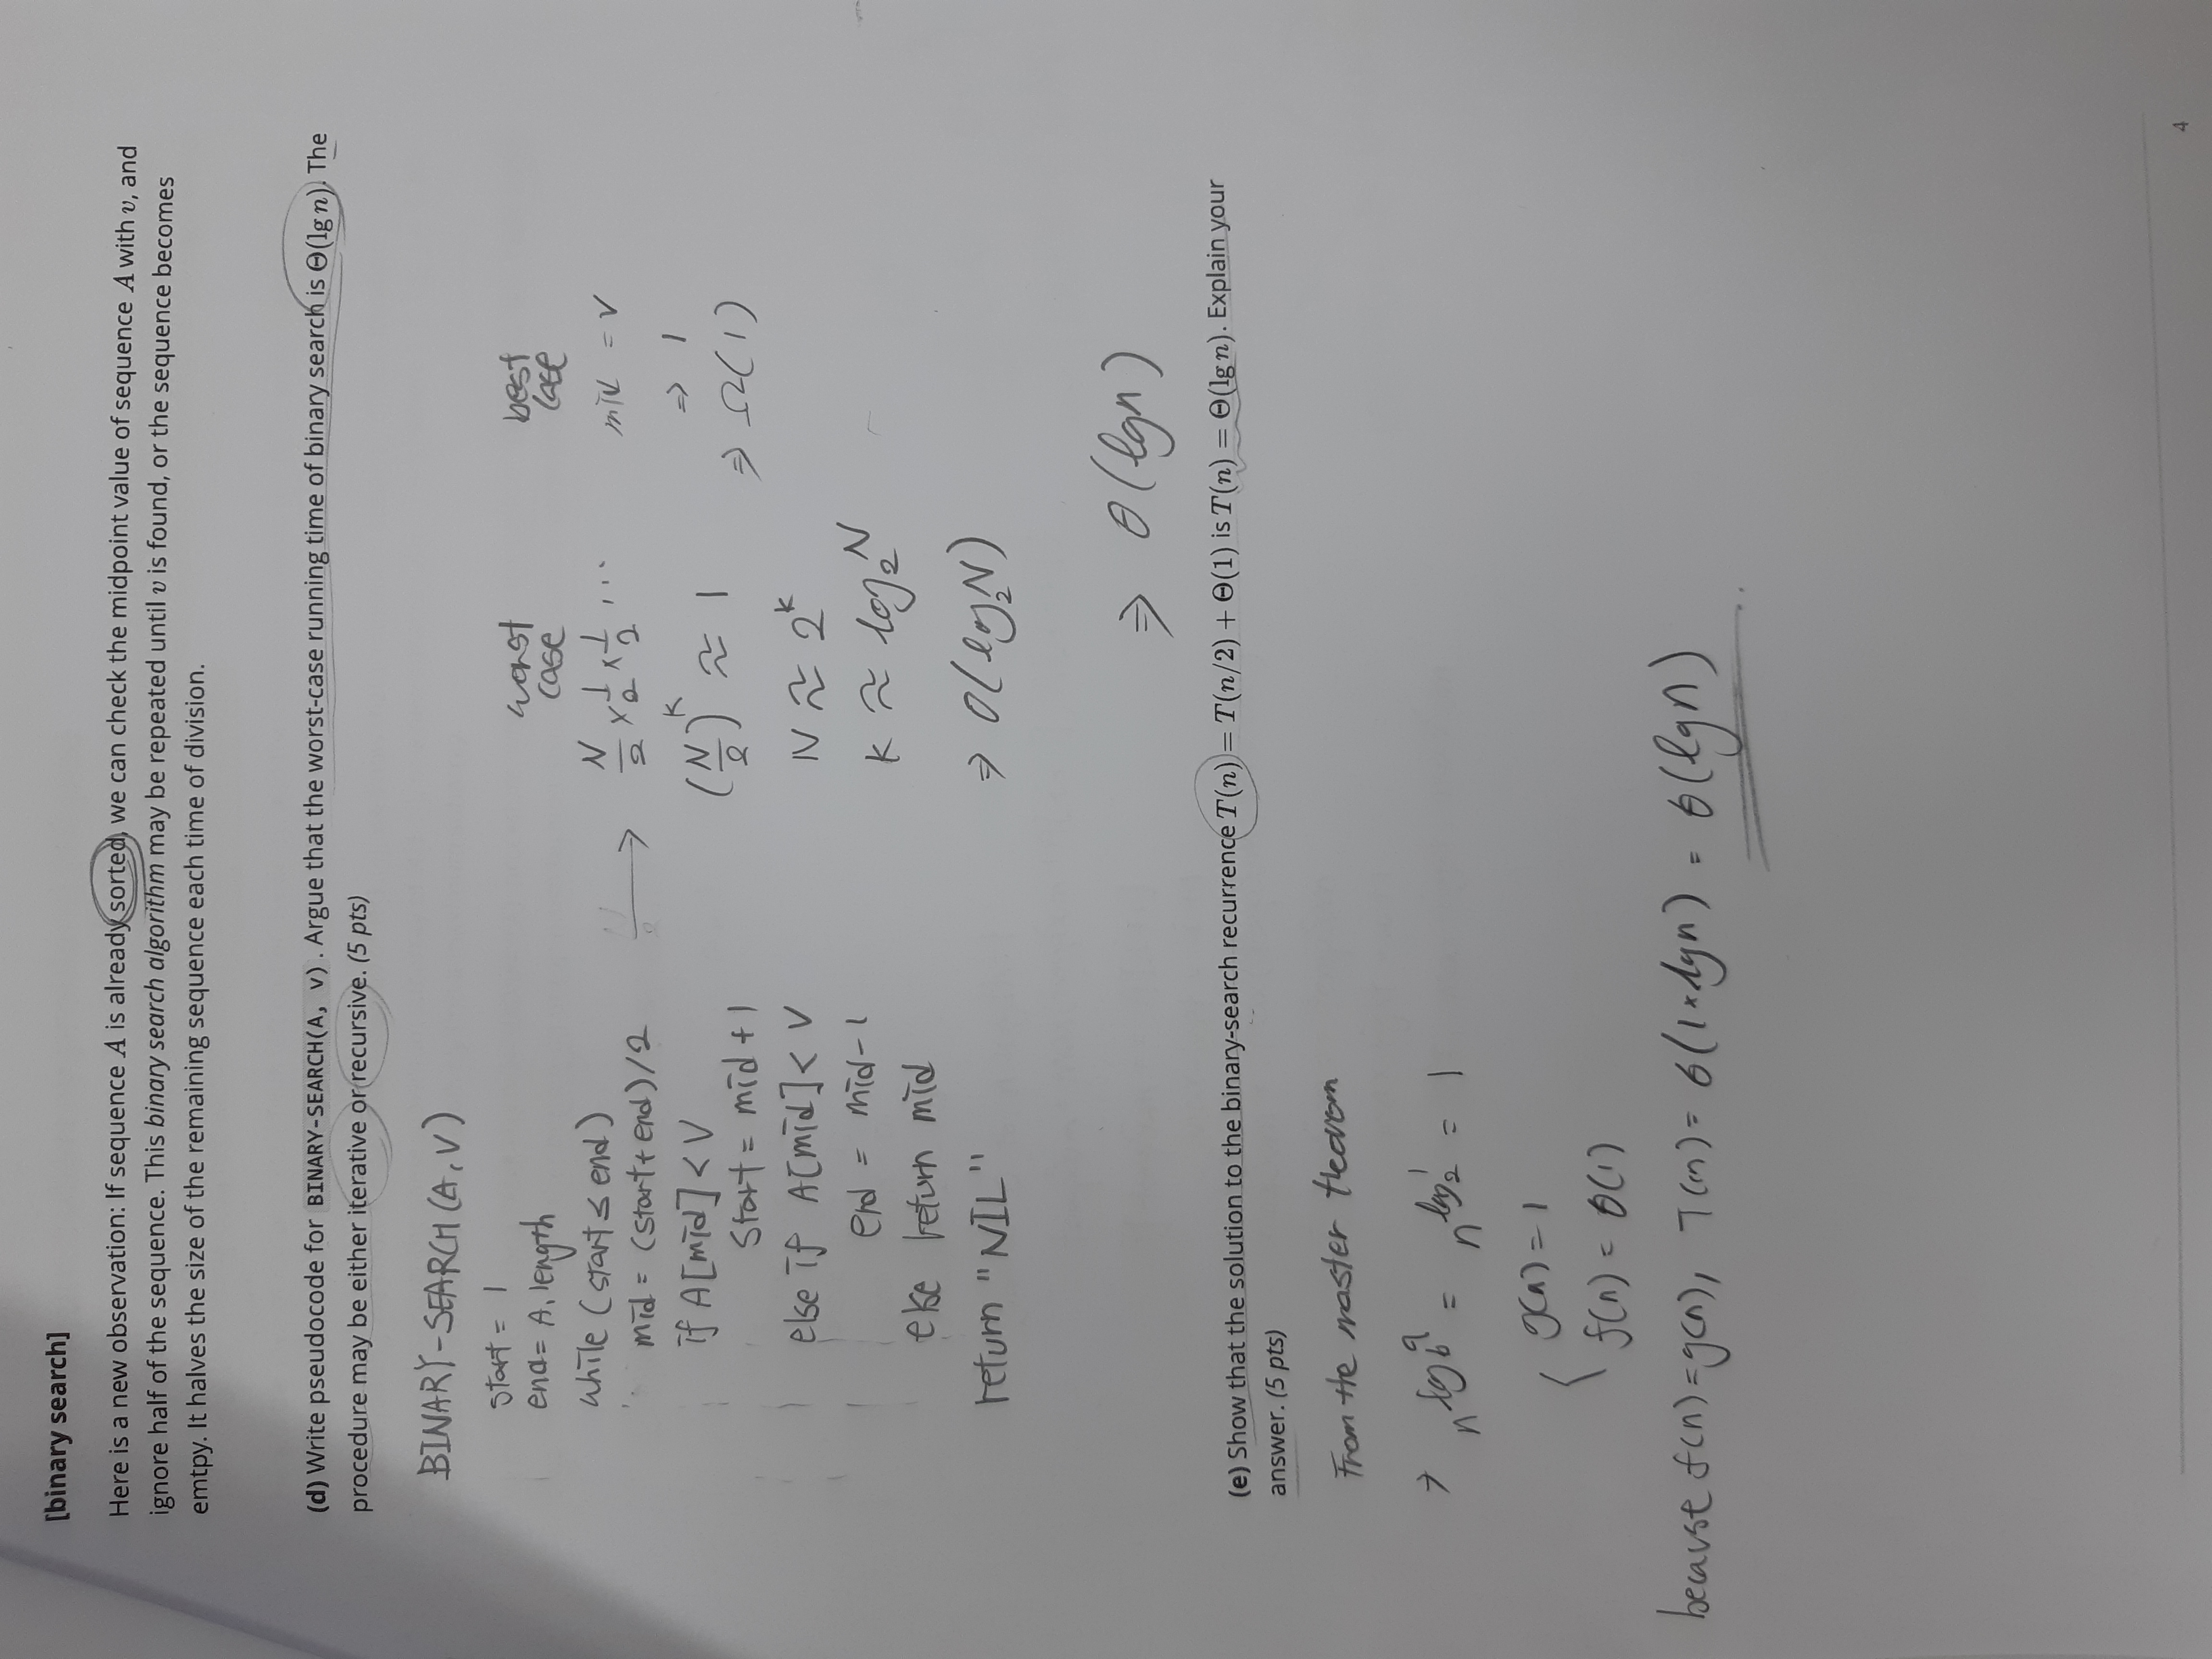 [binary search]
Here is a new observation: If sequence A is already sorted, we can check the midpoint value of sequence A with v, and
ignore half of the sequence. This binary search algorithm may be repeated until v is found, or the sequence becomes
emtpy. It halves the size of the remaining sequence each time of division.
(d) Write pseudocode for BINARY-SEARCH(A, v) . Argue that the worst-case running time of binary search is Θ(lg n). The
procedure may be either iterative or recursive. (5 pts)
BINARY-SEARCH (A, V)
start = 1
end = A, length
while (start ≤ end)
mid = (start + end)/2
if A[mid] < V
start = mid + 1
else if A[mid] < V
end = mid-1
else return mid
return "NIL"
worst
case
N/2 × 1/2 × 1/2 ...
(N/2)^K ≈ 1
N ≈ 2^K
K ≈ log₂N
⇒ O(log₂N)
best
case
mid = V
⇒ 1
⇒ Ω(1)
⇒ θ(lgn)
(e) Show that the solution to the binary-search recurrence T(n) = T(n/2) + Θ(1) is T(n) = Θ(lg n). Explain your
answer. (5 pts)
From the master theorom
→ n^log_b^a = n^log_2^1 = 1
{ g(n) = 1
f(n) = θ(1)
because f(n)=g(n), T(n) = θ(1*lgn) = θ(lgn)
4